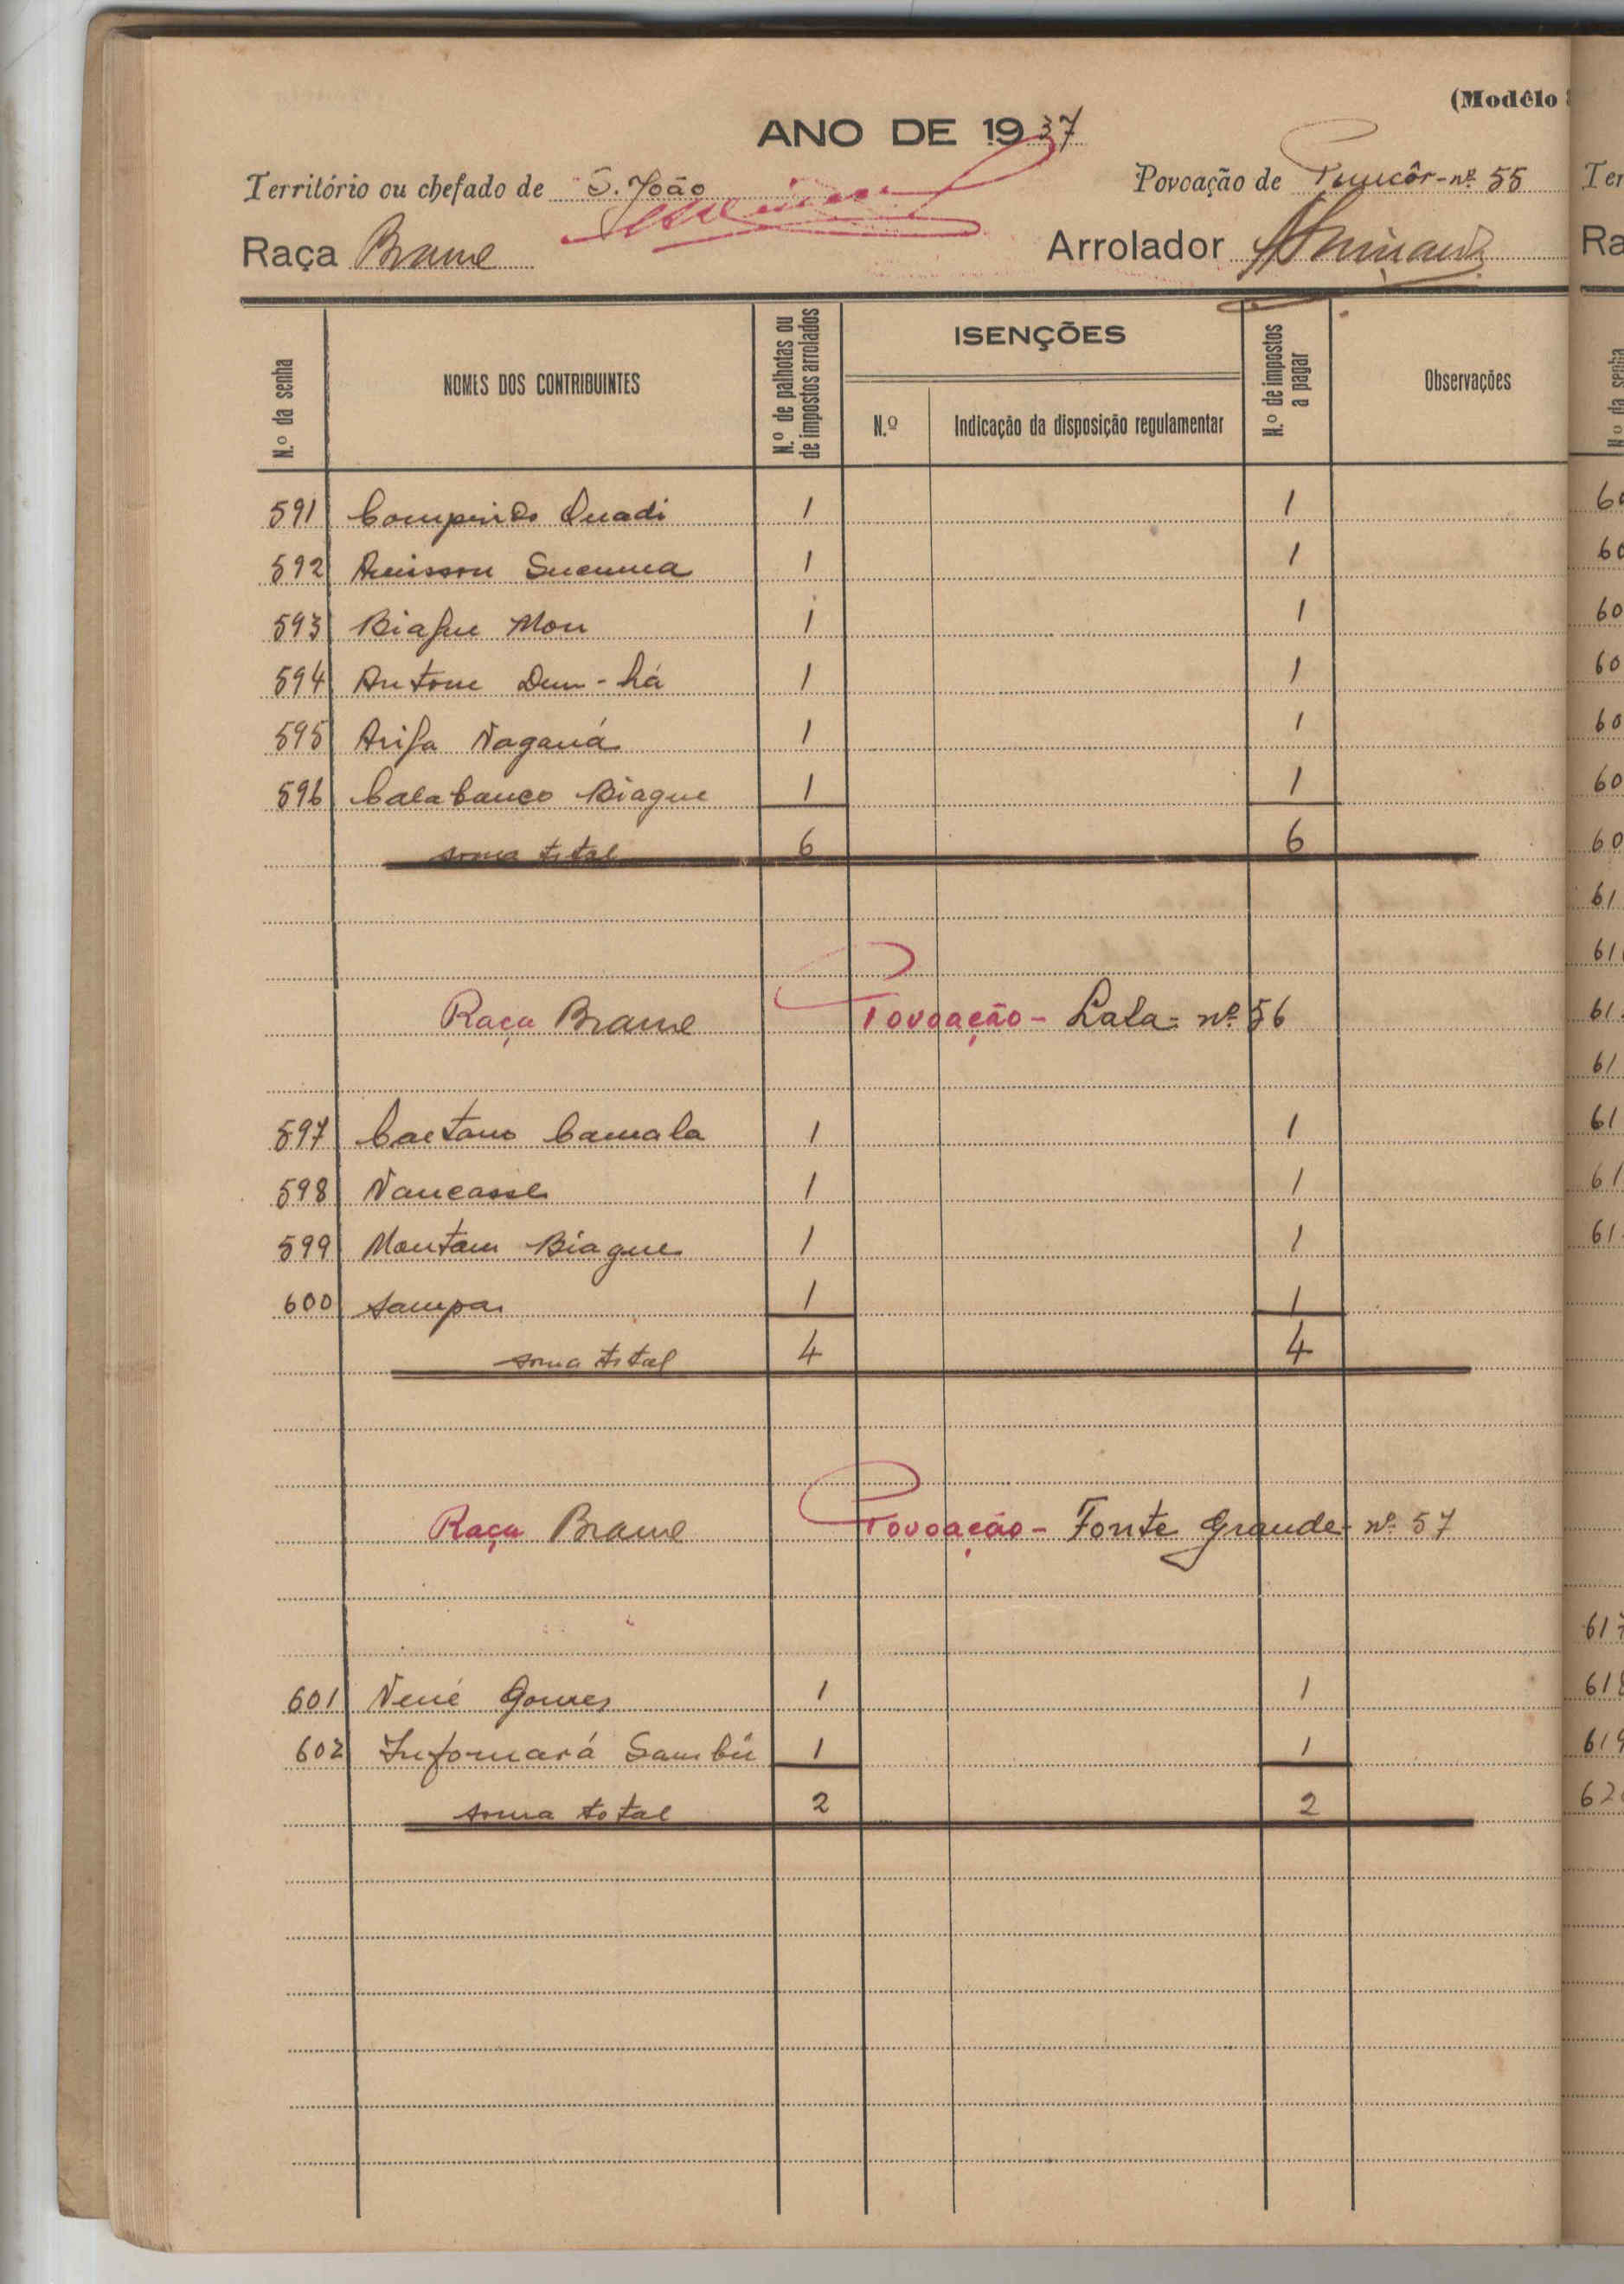 (Modêlo
ANO DE 1937
Território ou chefado de S. João Povoação de nº 55
Raça Brame Arrolador
N.º da senha
NOMES DOS CONTRIBUINTES
N.º de palhotas ou de impostos arrolados
ISENÇÕES
N.º
Indicação da disposição regulamentar
N.º de impostos a pagar
Observações
591 Quadi 1 1
592 1 1
593 Biague Mon 1 1
594 Antone Dem-há 1 1
595 Arifa Naganá 1 1
596 Calabanco Biague 1 1
soma total 6 6
Raça Brame Povoação - Lala - nº 56
597 Caetano Camala 1 1
598 Nancasse 1 1
599 Montam Biague 1 1
600 Sampa 1 1
soma total 4 4
Raça Brame Povoação - Fonte Grande - nº 57
601 Nené Gomes 1 1
602 Infomará Sambú 1 1
soma total 2 2